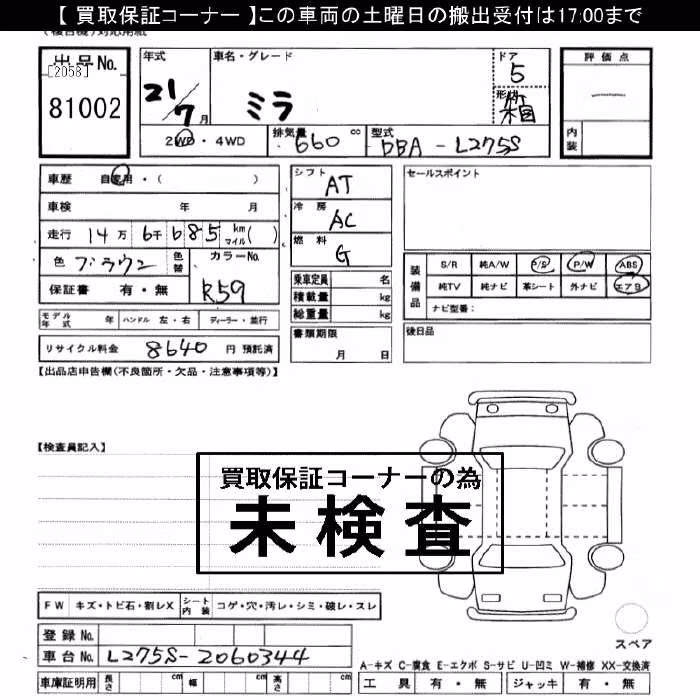 【 買取保証コーナー 】この車両の土曜日の搬出受付は17:00まで
出品No.
[2058]
81002
年式
21/7月
車名・グレード
ミラ
ドア
5
形状
箱
評価点
内装
2WD・4WD
排気量
660 cc
型式
DBA-L275S
車歴 自家用・( )
車検 年 月
走行 14万 6千 685 km マイル( )
色 ブラウン
色替
カラーNo.
R59
保証書 有・無
シフト
AT
冷房
AC
燃料
G
乗車定員 名
積載量 kg
総重量 kg
セールスポイント
装備品
S/R 純A/W P/S P/W ABS
純TV 純ナビ 革シート 外ナビ エアB
ナビ型番:
モデル年式 年 ハンドル 左・右 ディーラー・並行
書類期限
月 日
後日品
リサイクル料金 8640 円 預託済
【出品店申告欄(不良箇所・欠品・注意事項等)】
【検査員記入】
買取保証コーナーの為
未検査
FW キズ・トビ石・割レX シート内装 コゲ・穴・汚レ・シミ・破レ・スレ
スペア
登録No.
車台No. L275S-2060344
車庫証明用 長さ cm 幅 cm 高さ cm
A-キズ C-腐食 E-エクボ S-サビ U-凹ミ W-補修 XX-交換済
工具 有・無 ジャッキ 有・無